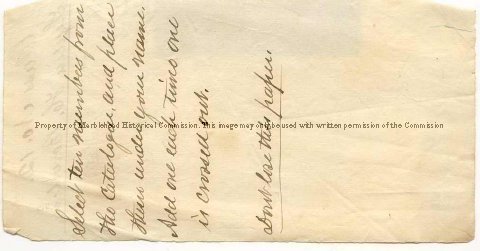 Select ten numbers from
the Catalogue, and place
them under your name.
Add one each time one
is crossed out.
Dont lose this paper.
Property of Marblehead Historical Commission. This image may only be used with written permission of the Commission